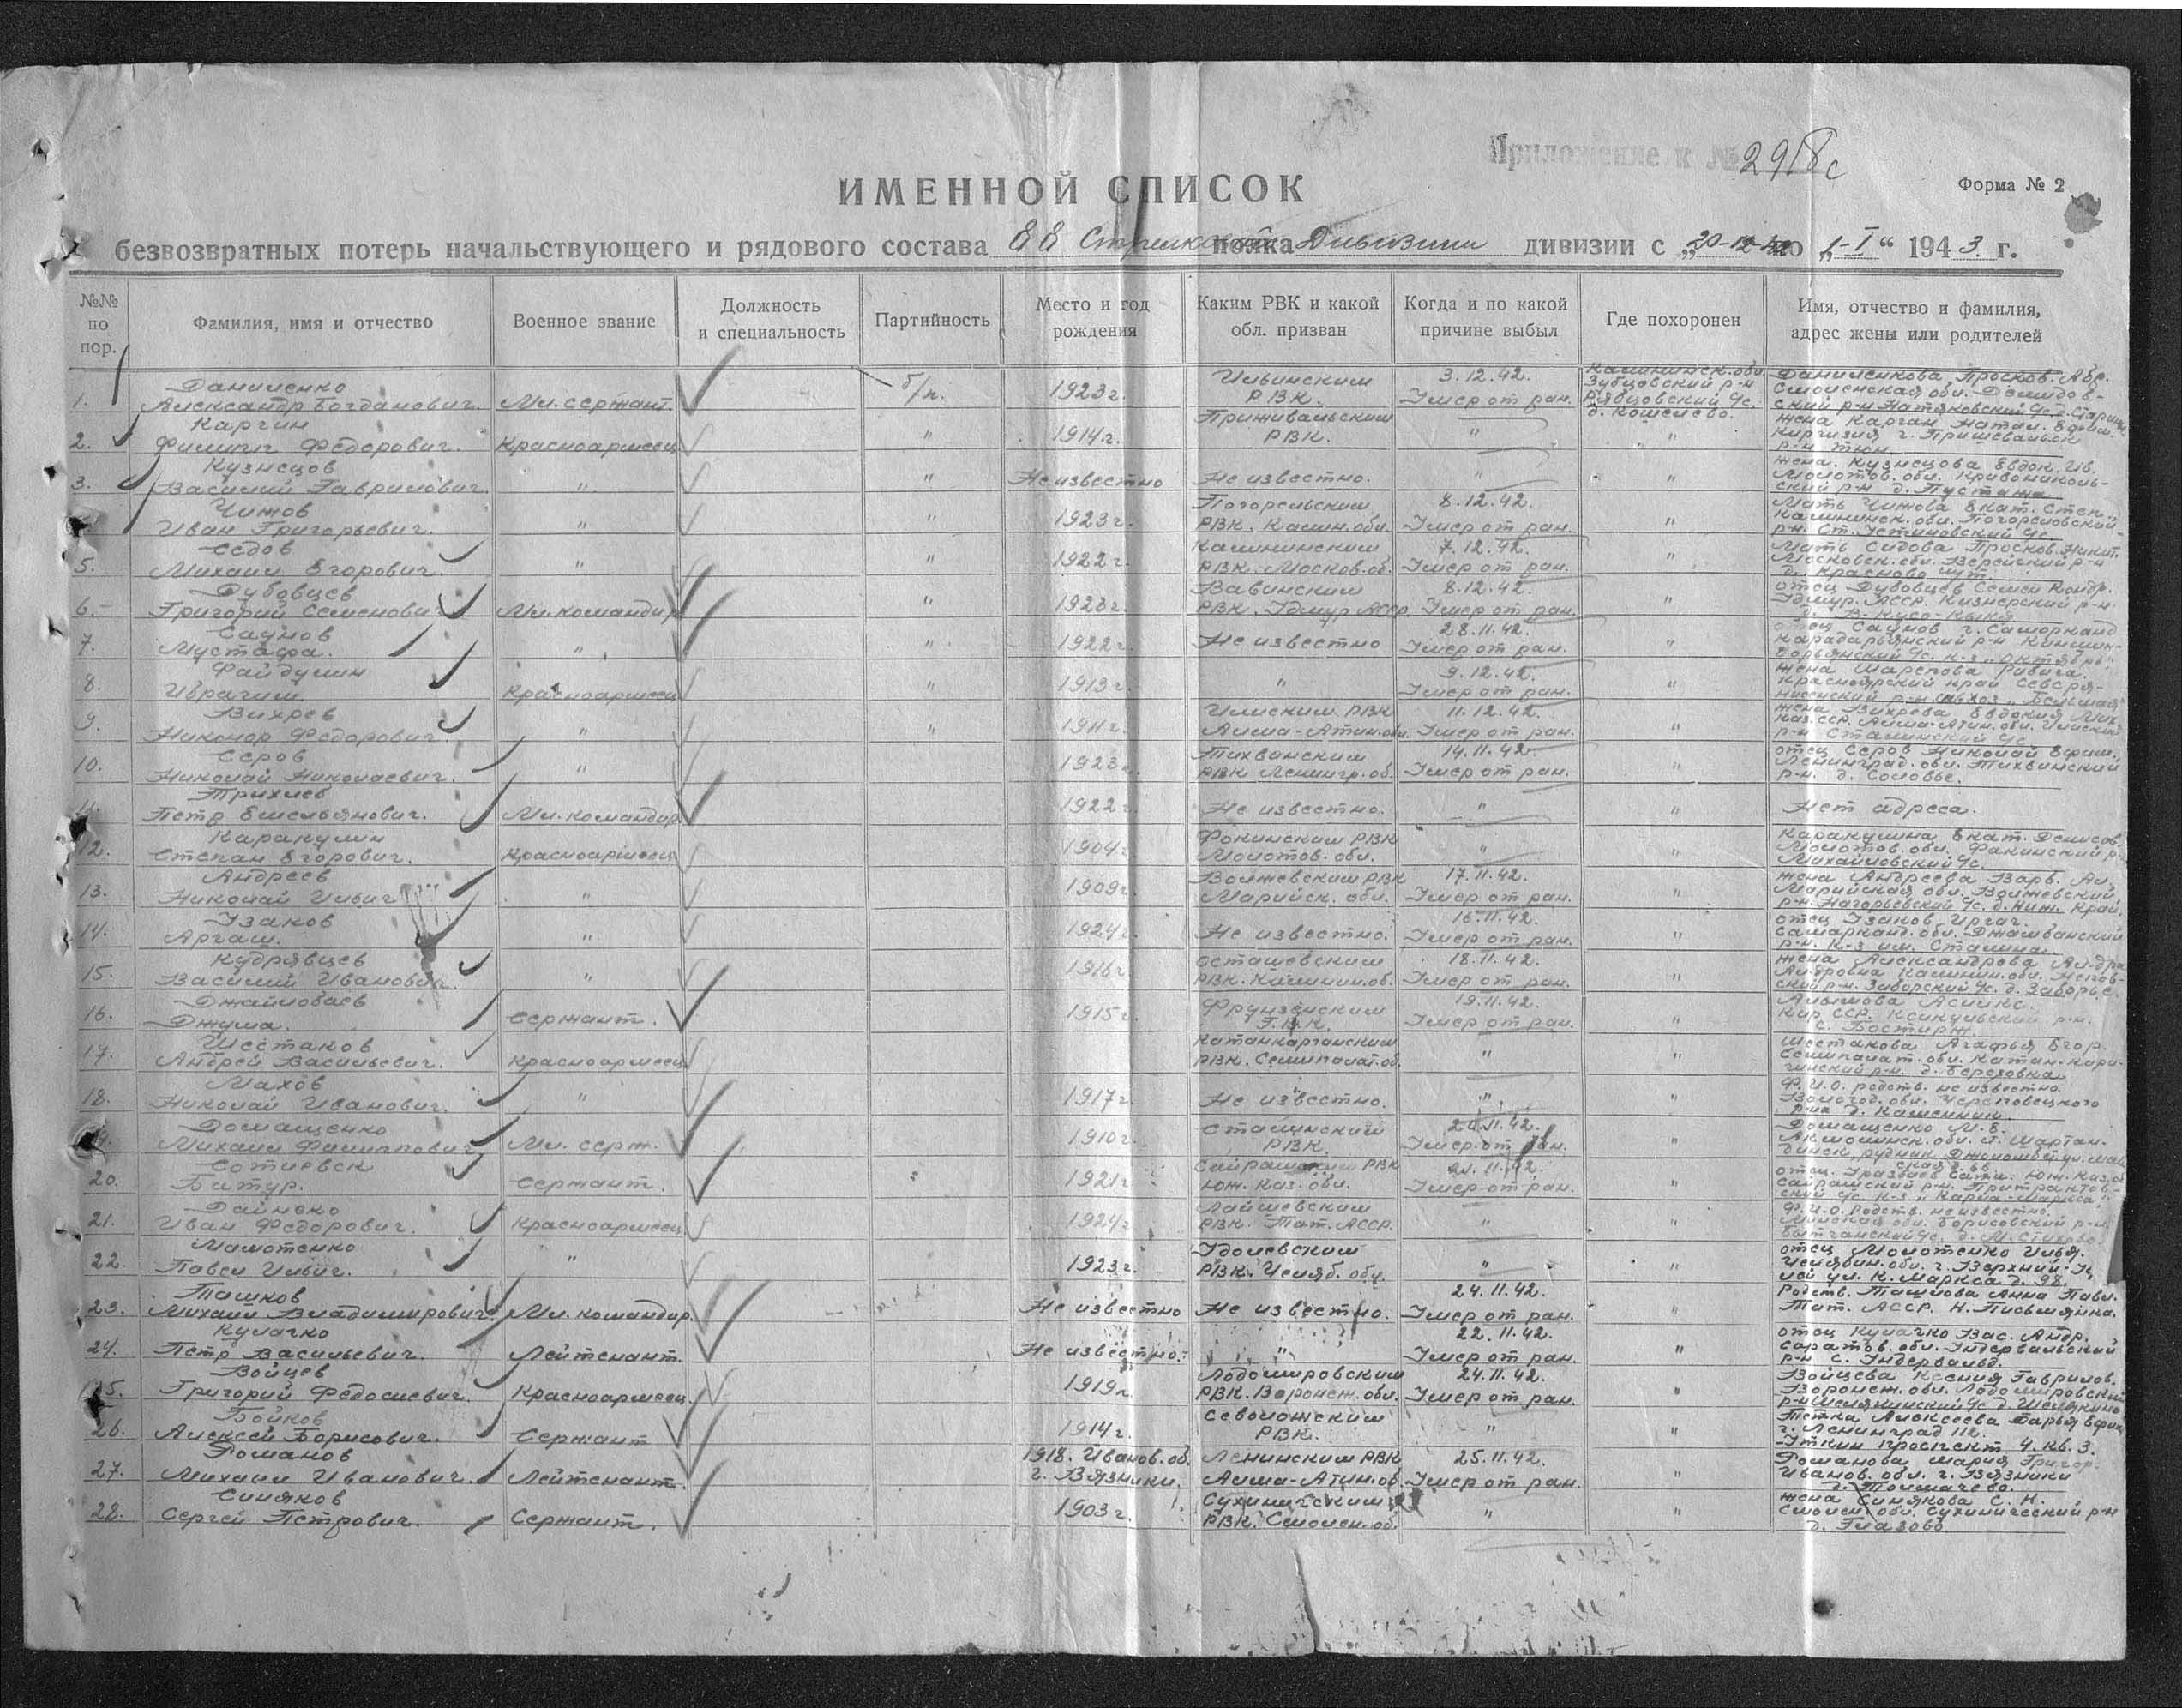 Приложение к № 2918с
ИМЕННОЙ СПИСОК
Форма № 2
безвозвратных потерь начальствующего и рядового состава 88 Стрелковой полка Дивизии дивизии с „20-12-42 по „1-I“ 1943 г.
№№ по пор.
Фамилия, имя и отчество
Военное звание
Должность и специальность
Партийность
Место и год рождения
Каким РВК и какой обл. призван
Когда и по какой причине выбыл
Где похоронен
Имя, отчество и фамилия, адрес жены или родителей
1. Даниленко Александр Богданович. Мл. сержант. б/п. 1923 г. Ильинским РВК. 3.12.42. Умер от ран. Калининск. обл. Зубцовский р-н Рябцовский с/с. д. Кошелево. Даниленкова Просков. Смоленская обл.
2. Каргин Филипп Федорович. Красноармеец " 1914 г. Приживальским РВК. " " жена Карган Натал. Киргизия г. Пришевальск
3. Кузнецов Василий Гаврилович. " " Не известно Не известно. " " жена. Кузнецова Евдок. Ив. Молотов. обл. Кривониколь-ский р-н д. Пустажа
4. Чижов Иван Григорьевич. " " 1923 г. Погорельским РВК. Калин. обл. 8.12.42. Умер от ран. " Мать Чижова Екат. Степ. Калининск. обл. Погореловский р-н. Ст. Устиновский с/с.
5. Седов Михаил Егорович. " " 1922 г. Калининским РВК. Москов. об. 7.12.42. Умер от ран. " Мать Сидова Просков. Никит. Московск. обл. Верейский р-н д. Красново
6. Дубовцев Григорий Семенович Мл. командир " 1923 г. Вавинским РВК. Удмур. АССР. 8.12.42. Умер от ран. " отец Дубовцев Семен Кондр. Удмур. АССР. Кизнерский р-н
7. Саунов Мустафа. " " 1922 г. Не известно 28.11.42. Умер от ран. " отец Саунов г. Самарканд Карадарьинский р-н
8. Файдулин Ибрагим. Красноармеец " 1913 г. " 9.12.42. Умер от ран. " жена Шарепова Красноярский край Северя-
9. Вихрев Никонор Федорович. " " 1911 г. Илиским РВК Алма-Атин. обл. 11.12.42. Умер от ран. " жена Вихрева Евдокия Мих. Каз. ССР. Алма-Атин. обл. Илийский р-н Сталинский с/с.
10. Серов Николай Николаевич. " 1923 г. Тихвинским РВК Ленингр. об. 14.11.42. Умер от ран. " отец Серов Николай Ефим. Ленинград. обл. Тихвинский р-н. д. Соловье.
11. Трихлев Петр Емельянович. Мл. командир 1922 г. Не известно. " " Нет адреса.
12. Каракулин Степан Егорович. Красноармеец 1904 г. Фокинским РВК Молотов. обл. " " Каракулина Екат. Денисов. Молотов. обл. Факинский р- Михайловский с/с.
13. Андреев Николай Ильич " 1909 г. Волжевским РВК Марийск. обл. 17.11.42. Умер от ран. " жена Андреева Варв. Ал. Марийская обл. Волжевский р-н. Нагорьевский с/с. д. Ниж. Край.
14. Узаков Аргаш. " 1924 г. Не известно. 16.11.42. Умер от ран. " отец Узаков Иргаг. Самарканд. обл. Джамбанский р-н. к-з им. Сталина.
15. Кудрявцев Василий Иванович. " 1916 г. Осташевским РВК. Калинин. об. 18.11.42. Умер от ран. " жена Александрова Калинин. обл. р-н. Заборский с/с. д. Заборье.
16. Джайловаев Джума. Сержант. 1915 г. Фрунзенским Г.В.К. 19.11.42. Умер от ран. " Алымова Кир ССР. р-н. с. Бостирж.
17. Шестаков Андрей Васильевич. Красноармеец Катанкарганским РВК. Семипалат. об. " " Шестакова Агафья Егор. Семипалат. обл. Катан-Кара-гинский р-н. д. Березовка
18. Махов Николай Иванович. " 1917 г. Не известно. " " Ф.И.О. родств. не известно. Вологод. обл. Череповецкого р-на д. Кашенник.
19. Домащенко Михаил Филиппович Мл. серж. 1910 г. Сталинским РВК. 20.11.42. Умер от ран. " Домащенко М.Е. Акмолинск. обл. рудник
20. Сотиевск Батур. Сержант. 1921 г. Сайрамским РВК Юж. Каз. обл. 21.11.42. Умер от ран. " отец. Уразбаев Юж. Каз. об. Сайрамский р-н. к-з „Карла-Маркса"
21. Дайнеко Иван Федорович. Красноармеец 1924 г. Лаишевским РВК. Тат. АССР. " " Ф.И.О. родств. неизвестно. Минская обл. Борисовский р-н.
22. Мамотенко Павел Ильич. " 1923 г. Удолевским РВК. Челяб. обл. " " отец Молотенко Илья. Челябин. обл. г. Верхний-У- ул. К. Маркса д. 98.
23. Ташков Михаил Владимирович. Мл. командир. Не известно Не известно. 24.11.42. Умер от ран. " Родств. Ташлова Анна Павл. Тат. АССР. Н. Письмянка.
24. Кулачко Петр Васильевич. Лейтенант. Не известно. " 22.11.42. Умер от ран. " отец Кулачко Вас. Андр. Саратов. обл. Ундервальский р-н с. Ундервальд.
25. Войцев Григорий Федосиевич. Красноармеец 1919 г. Лодомировским РВК. Воронеж. обл. 24.11.42. Умер от ран. " Войцева Ксения Гаврилов. Воронеж. обл. Лодомировский р-н Шелякинский с/с д. Шелякино
26. Бойков Алексей Борисович. Сержант 1914 г. Севоложским РВК. " " Тетка Алексеева Дарья г. Ленинград 112. Уткин проспект 4. кв. 3.
27. Романов Михаил Иванович. Лейтенант. 1918. Иванов. об. г. Вязники. Ленинским РВК Алма-Атин. об. 25.11.42. Умер от ран. " Романова Мария Григор. Иванов. обл. г. Вязники д. Толмачево.
28. Синяков Сергей Петрович. Сержант. 1903 г. Сухиничским РВК. Смолен. об. " " жена Синякова С.Н. Смолен. обл. Сухинический р-н д. Глазово